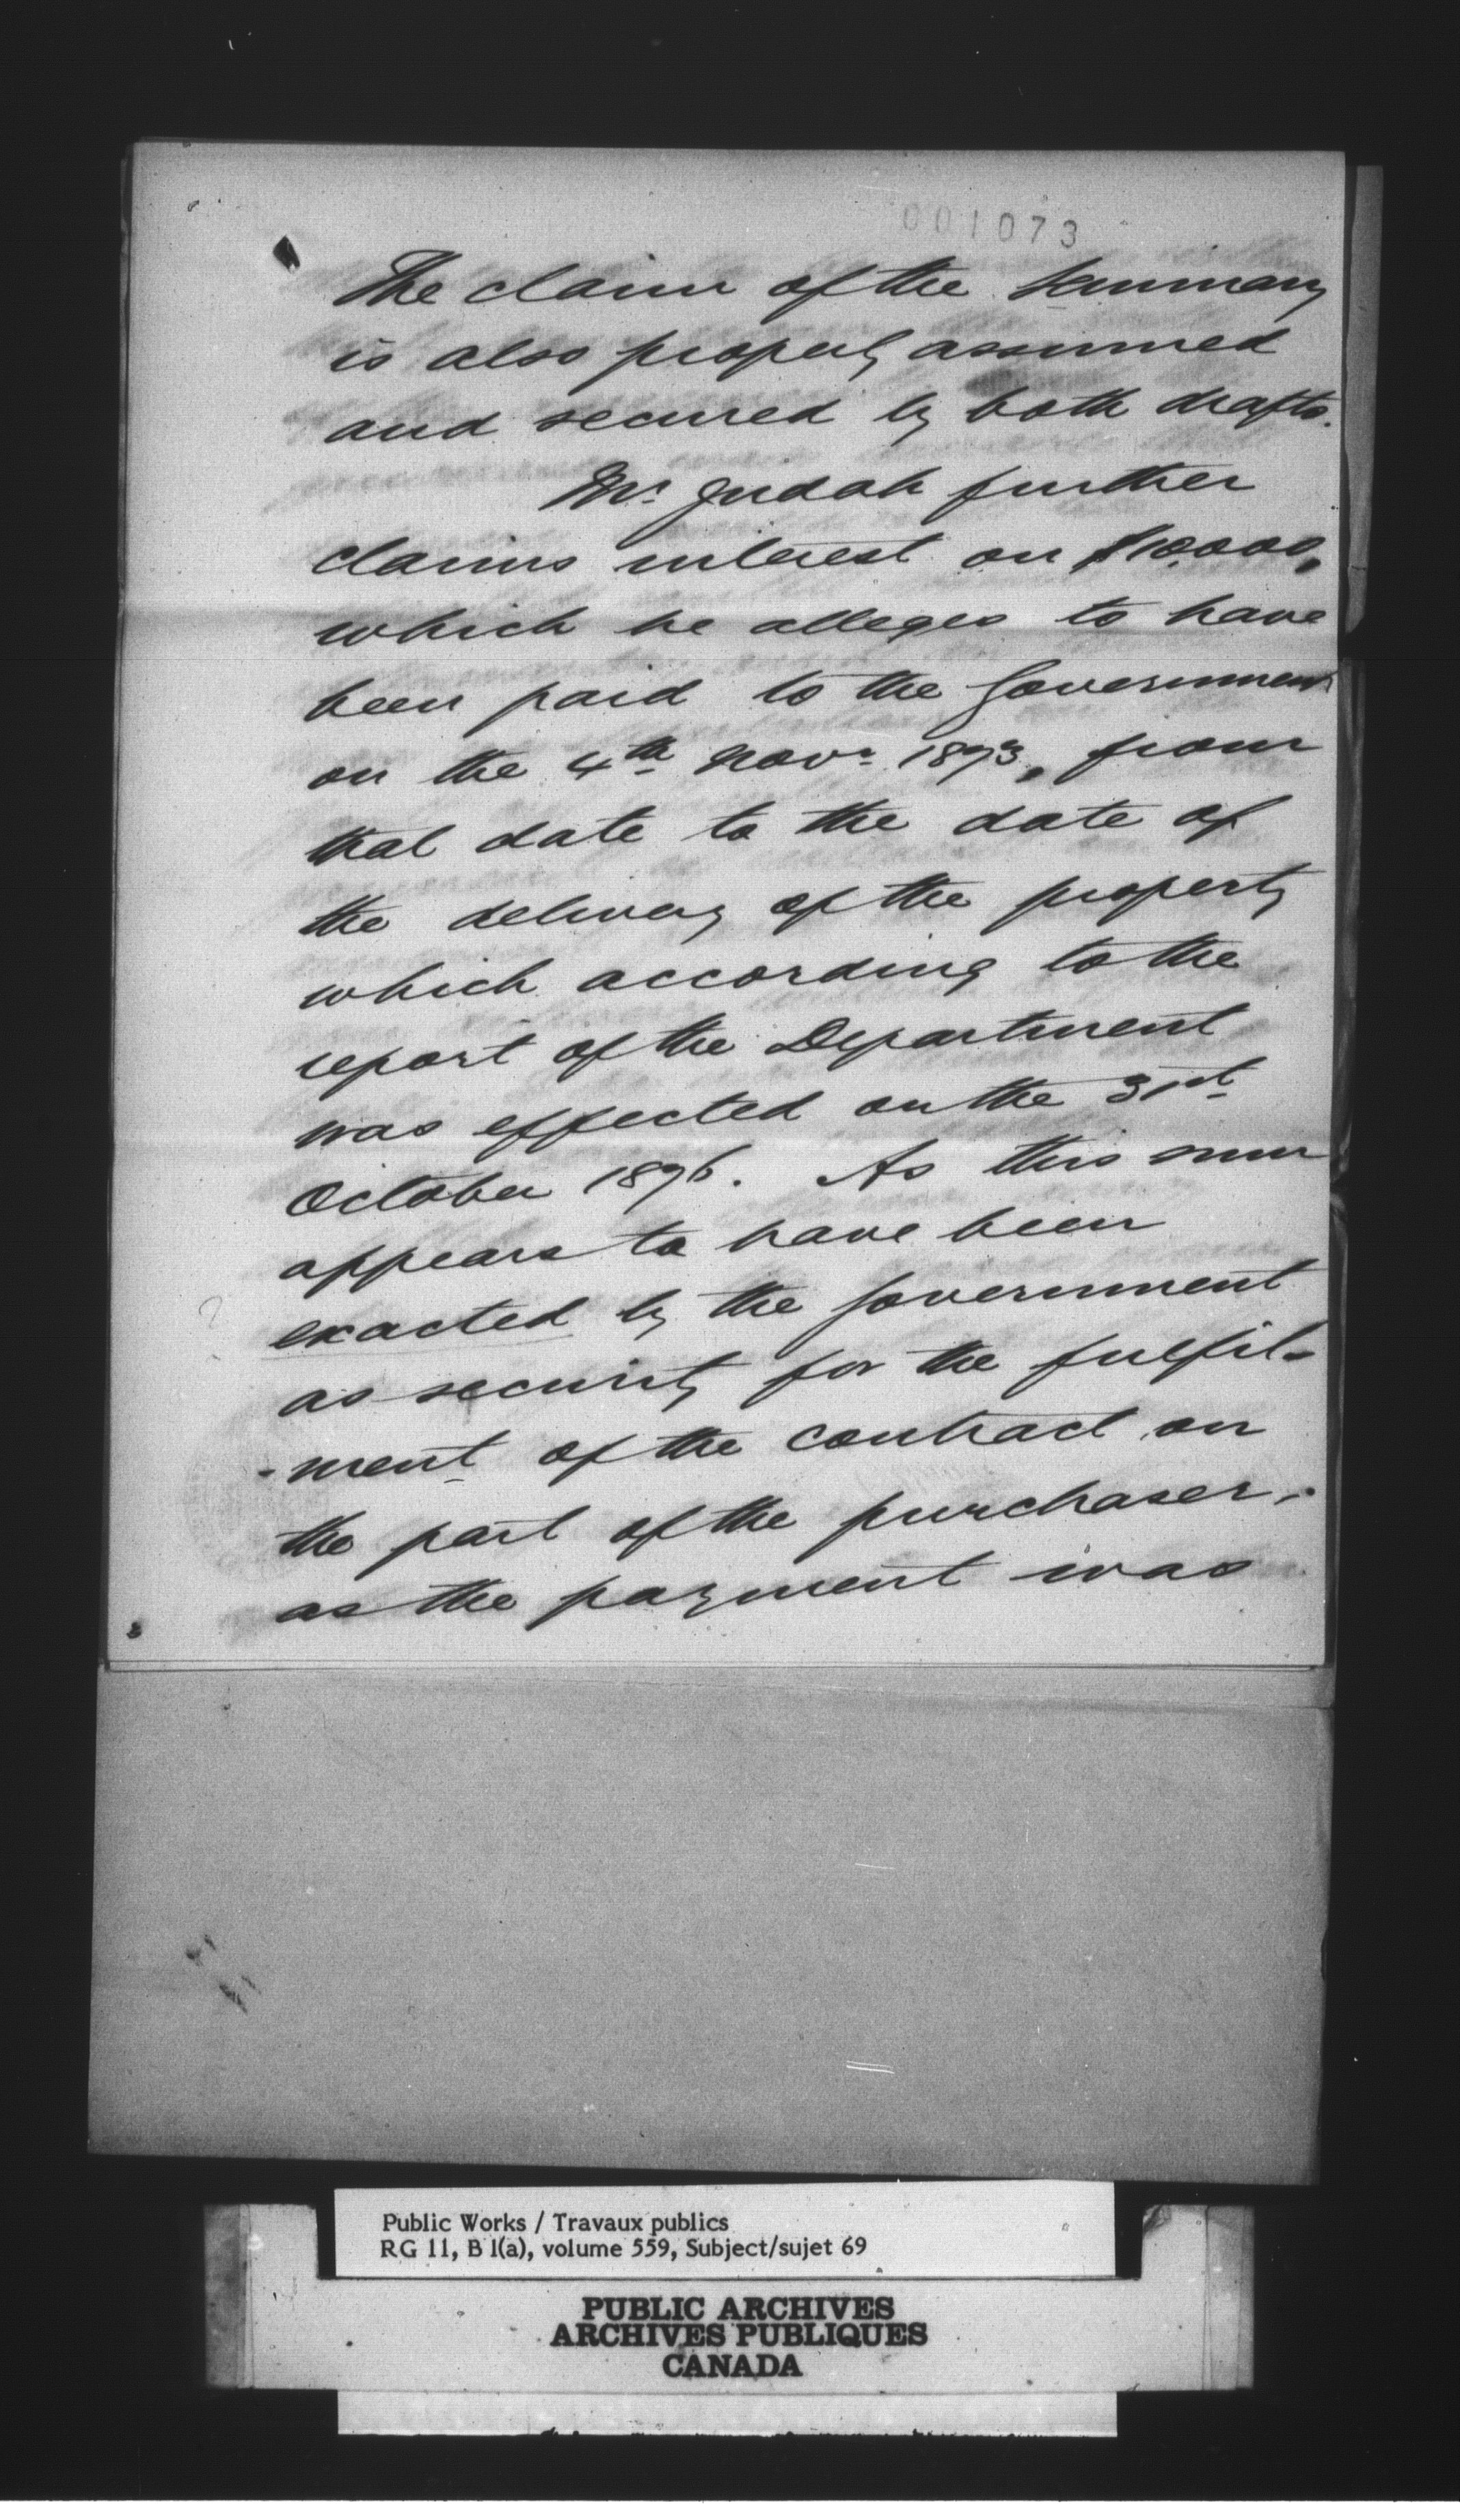 001073
The claim of the Seminary
is also properly assumed
and secured by both drafts.
Mr. Judah further
claims interest on $10,000,
which he alleges to have
been paid to the Government
on the 4th Novr. 1873, from
that date to the date of
the delivery of the property
which according to the
report of the Department
was effected on the 31st
October 1876. As this sum
appears to have been
exacted by the Government
as security for the fulfil-
-ment of the contract on
the part of the purchaser,
as the payment was
Public Works / Travaux publics
RG 11, B 1(a), volume 559, Subject/sujet 69
PUBLIC ARCHIVES
ARCHIVES PUBLIQUES
CANADA